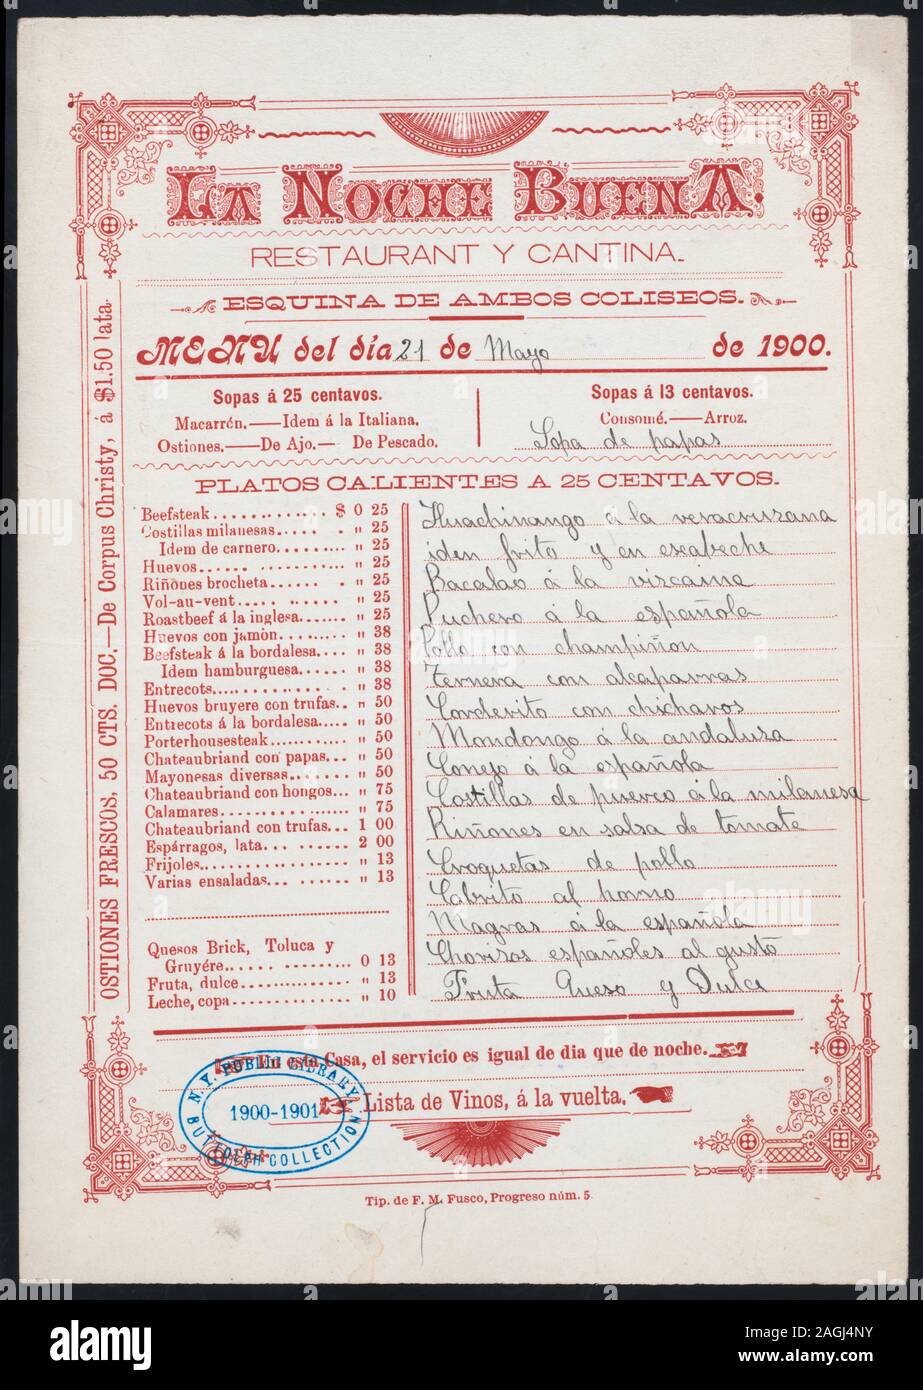 LA NOCHE BUENA.
RESTAURANT Y CANTINA.
ESQUINA DE AMBOS COLISEOS.
MENU del dia 21 de Mayo de 1900.
Sopas á 25 centavos.
Macarrón.—Idem á la Italiana.
Ostiones.—De Ajo.— De Pescado.
Sopas á 13 centavos.
Consomé.—Arroz.
Sopa de papas
PLATOS CALIENTES A 25 CENTAVOS.
Beefsteak............ $ 0 25
Costillas milanesas..... " 25
Idem de carnero......... " 25
Huevos...... ............ " 25
Riñones brocheta...... . " 25
Vol-au-vent.... ....... " 25
Roastbeef á la inglesa...... " 25
Huevos con jamòn......... " 38
Beefsteak á la bordalesa.... " 38
Idem hamburguesa..... " 38
Entrecots.............. . " 38
Huevos bruyere con trufas.. " 50
Entrecots á la bordalesa..... " 50
Porterhousesteak........... " 50
Chateaubriand con papas... " 50
Mayonesas diversas........ " 50
Chateaubriand con hongos... " 75
Calamares................ " 75
Chateaubriand con trufas... 1 00
Espárragos, lata... ...... 2 00
Frijoles.................. " 13
Varias ensaladas... ...... " 13
Quesos Brick, Toluca y
Gruyére...... ......... 0 13
Fruta, dulce.............. " 13
Leche, copa............... " 10
Huachinango á la veracruzana
iden frito y en escabeche
Bacalao á la viscaina
Puchero á la española
Pollo con champiñon
Ternera con alcaparras
Corderito con chicharos
Mondongo á la andaluza
Conejo á la española
Costillas de puerco á la milanesa
Riñones en salsa de tomate
Croquetas de pollo
Cabrito al horno
Magras á la española
Chorisos españoles al gusto
Fruta Queso y Dulce
OSTIONES FRESCOS, 50 CTS. DOC.—De Corpus Christy, á $1.50 lata.
En esta Casa, el servicio es igual de dia que de noche.
Lista de Vinos, á la vuelta.
N.Y. PUBLIC LIBRARY
1900-1901
BUTTOLPH COLLECTION
Tip. de F. M. Fusco, Progreso núm. 5
alamy
Image ID: 2AGJ4NY
www.alamy.com